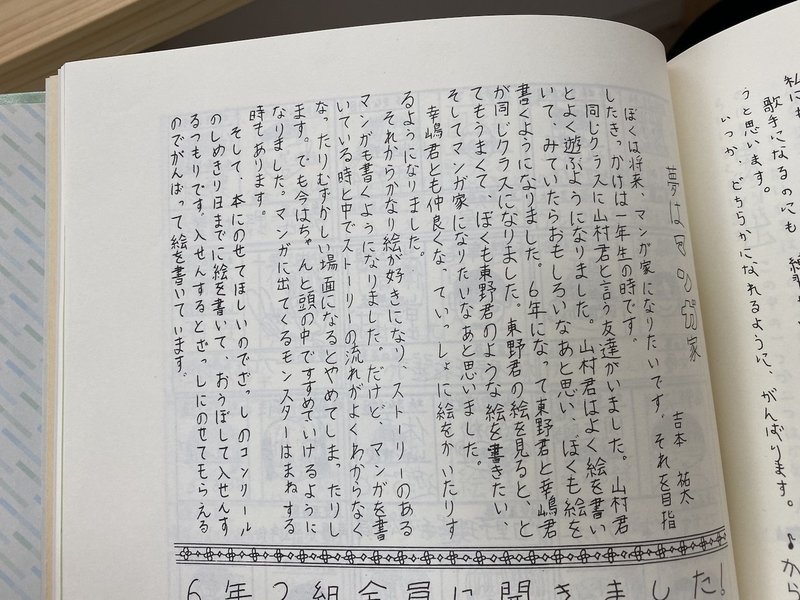 歌手になるのにも
うと思います。
いつか、どちらかになれるように、がんばります。♪
から
夢はマンガ家
吉本 祐太
ぼくは将来、マンガ家になりたいです。それを目指
したきっかけは一年生の時です。
同じクラスに山村君と言う友達がいました。山村君
とよく遊ぶようになりました。山村君はよく絵を書い
いて、みていたらおもしろいなあと思い、ぼくも絵を
書くようになりました。6年になって東野君と幸嶋君
が同じクラスになりました。東野君の絵を見ると、と
てもうまくて、ぼくも東野君のような絵を書きたい、
そしてマンガ家になりたいなあと思いました。
幸嶋君とも仲良くな、ていっしょに絵をかいたりす
るようになりました。
それからかなり絵が好きになり、ストーリーのある
マンガも書くようになりました。だけど、マンガを書
いている時と中でストーリーの流れがよくわからなく
なったりむずかしい場面になるとやめてしまったりし
ます。でも今はちゃんと頭の中ですすめていけるように
なりました。マンガに出てくるモンスターはまねする
時もあります。
そして、本にのせてほしいのでざっしのコンクール
のしめきり日までに絵を書いて、おうぼして入せんす
るつもりです。入せんするとざっしにのせてもらえる
のでがんばって絵を書いています。
6年2組全員に聞きました!